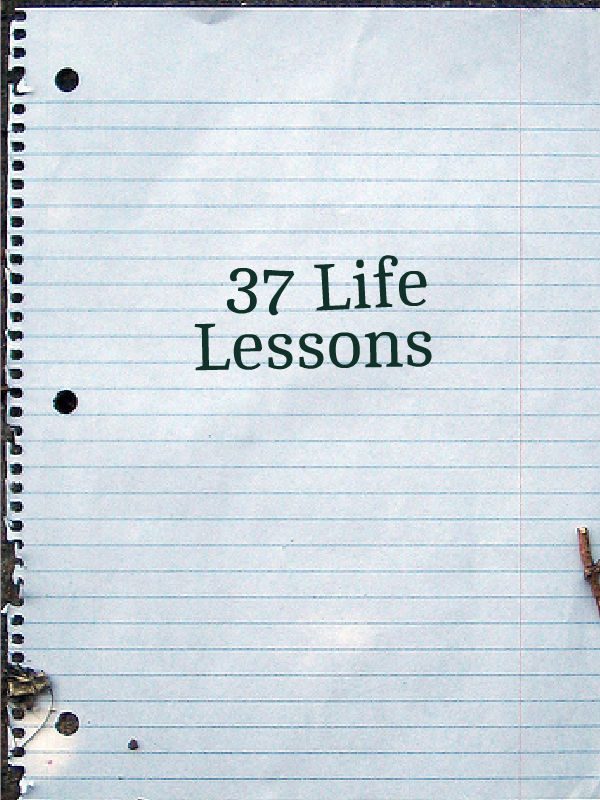 37 Life
Lessons